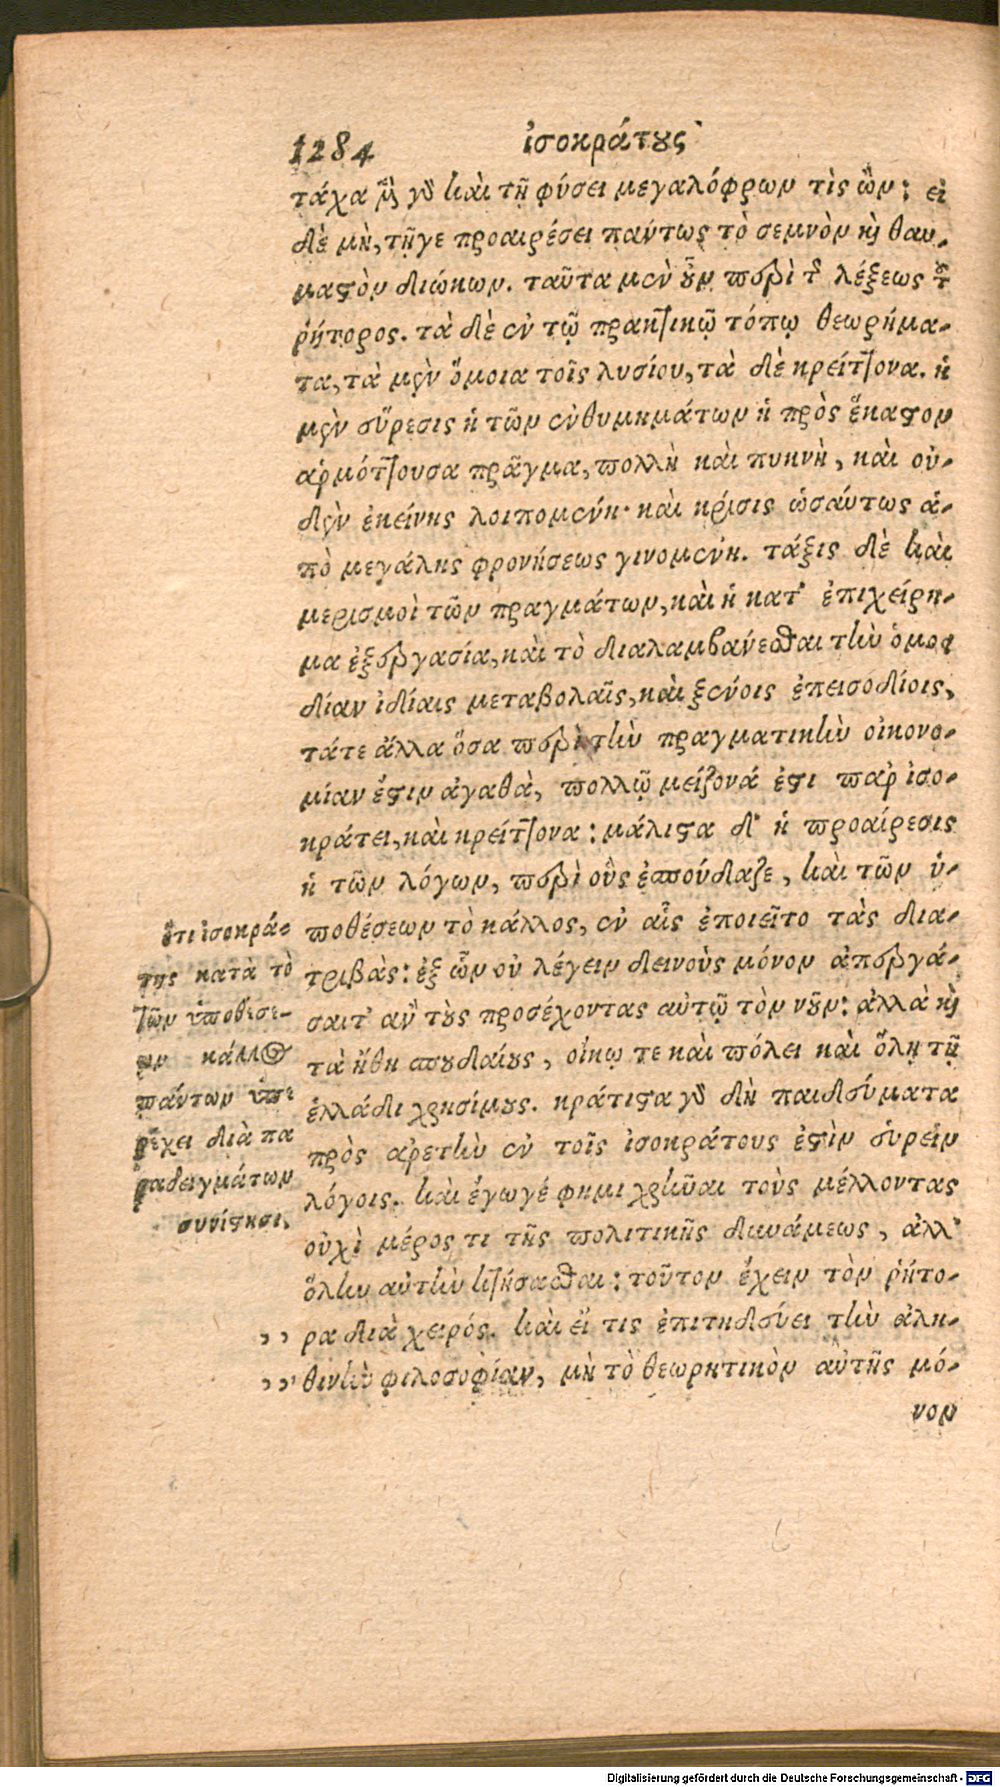 1284 ἰσοκράτους
τάχα μὲν γὸ καὶ τῇ φύσει μεγαλόφρων τὶς ὢν; εἰ
δὲ μὴ, τῇγε προαιρέσει πάντως τὸ σεμνὸν καὶ θαυ-
μαστὸν διώκων. ταῦτα μὲν οὖν περὶ τῆς λέξεως τοῦ
ῥήτορος. τὰ δὲ ἐν τῷ πρακτικῷ τόπῳ θεωρήμα-
τα, τὰ μὲν ὅμοια τοῖς λυσίου, τὰ δὲ κρείττονα. ἡ
μὲν εὕρεσις ἡ τῶν ἐνθυμημάτων ἡ πρὸς ἕκαστον
αρμόττουσα πρᾶγμα, πολλὴ καὶ πυκνὴ, καὶ οὐ-
δὲν ἐκείνης λοιπομένη· καὶ κρίσις ὡσαύτως ἀ-
πὸ μεγάλης φρονήσεως γινομένη. τάξις δὲ καὶ
μερισμοὶ τῶν πραγμάτων, καὶ ἡ κατ' ἐπιχείρη-
μα ἐξεργασία, καὶ τὸ διαλαμβάνεσθαι τὴν ὁμοει
δίαν ἰδίαις μεταβολαῖς, καὶ ξένοις ἐπεισοδίοις,
τάτε ἄλλα ὅσα περὶ τὴν πραγματικὴν οἰκονο-
μίαν ἔστιν ἀγαθὰ, πολλῷ μείζονά ἐστι παρ ἰσο-
κράτει, καὶ κρείττονα: μάλιστα δ' ἡ προαίρεσις
ἡ τῶν λόγων, περὶ οὓς ἐσπούδαζε, καὶ τῶν ὑ-
ποθέσεων τὸ κάλλος, ἐν αἷς ἐποιεῖτο τὰς δια-
τριβὰς: ἐξ ὧν οὐ λέγειν δεινοὺς μόνον ἀπεργά-
σαιτ' ἂν τοὺς προσέχοντας αὐτῷ τὸν νοῦν: ἀλλὰ καὶ
τὰ ἤθη σπουδαίους, οἴκῳ τε καὶ πόλει καὶ ὅλῃ τῇ
ἑλλάδι χρησίμους. κράτιστα γὸ δὴ παιδεύματα
πρὸς αρετὴν ἐν τοῖς ἰσοκράτους ἐστὶν εὑρεῖν
λόγοις. καὶ ἔγωγέ φημι χρῆναι τοὺς μέλλοντας
οὐχὶ μέρος τι τῆς πολιτικῆς δυνάμεως, ἀλλ'
ὅλην αὐτὴν κτήσασθαι: τοῦτον ἔχειν τὸν ῥήτο-
,, ρα διὰ χειρός. καὶ εἴ τις ἐπιτηδεύει τὴν ἀλη-
,, θινὴν φιλοσοφίαν, μὴ τὸ θεωρητικὸν αὐτῆς μό-
νον
ὅτι ἰσοκρά-
της κατὰ τὸ
τῶν ὑποθέσε-
ων κάλλος
πάντων ὑπε
ρέχει διὰ πα
ραδειγμάτων
συνίστησι.
Digitalisierung gefördert durch die Deutsche Forschungsgemeinschaft - DFG